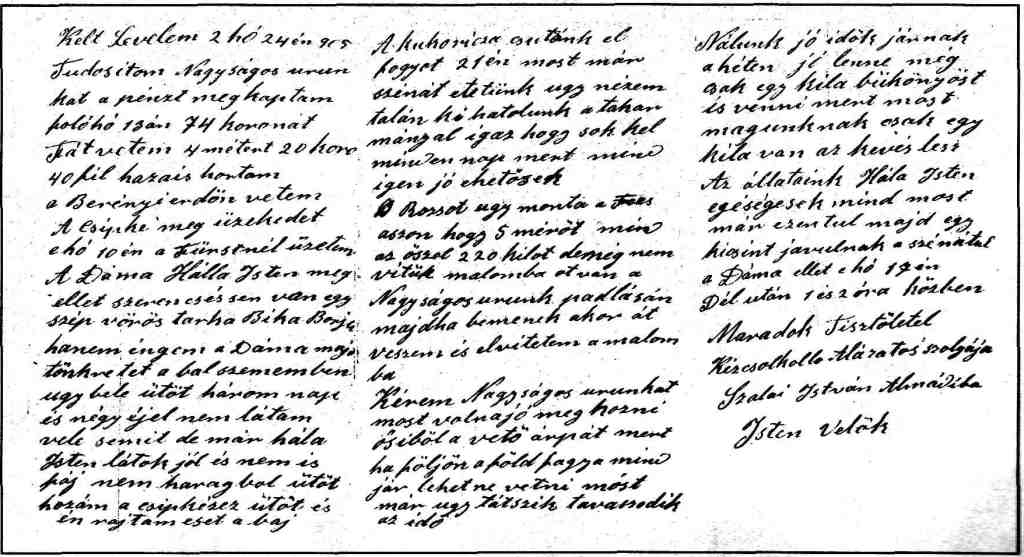 Kelt Levelem 2 hó 24én 905
Tudositom Nagyságos urun
kat a pénzt meg kaptam
folóhó 13án 74 koronát
Fát vetem 4 métert 20 koro
40 fil hazais hortam
a Berényi erdön vetem
A Csipke meg üzekedet
e hó 10én a Fürstnél üzetem
A Dáma Hálla Isten meg
ellet szerencséssen van egy
szép vörös tarka Bika Borju
hanem éngem a Dáma maj
tönkretet a bal szememben
ugy bele ütöt három nap
és négy éjel nem látam
vele semit de már hála
Isten látok jól és nem is
fáj nem haragbol ütöt
hozám a csipkéhez ütöt és
én rajtam eset a baj
A kukoricza csutánk el
fogyot 21én most már
szénát etetünk ugy nézem
talán ki hatolunk a takar
mányal igaz hogy sok kel
minden nap mert mind
igen jó ehetösek
Rozsot ugy monta a
aszon hogy 5 méröt mind
az öszöl 220 kilot demég nem
vitük malomba ot van a
Nagyságos urunk padlásán
majdha bemenek akor át
veszem és elvitetem a malom
ba
Kérem Nagyságos urunkat
most volnajó meg hozni
ösiböl a vetö árpát mert
ha följön a föld fagya mind
jár lehetne vetni móst
már ugy tátszik tavassodik
az idö
Nálunk jó idök járnak
a héten jó lenne még
csak egy kila bükönyöst
is venni mert most
magunknak csak egy
kila van az kevés lesz
Az állataink Hála Isten
egéségesek mind most
már ezentul majd egy
kicsint javulnak a szénátul
a Dáma ellet e hó 17én
Dél után 1 és 2 óra közben
Maradok Tisztöletel
Kézcsolkollo Alázatos szolgája
Szalai István Almádiba
Isten Velök